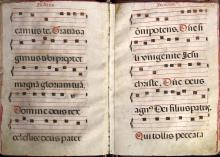 camus te. Gratias a
gimus tibi propter
magnã gloriam tuã
Domine deus rex
celestis deus pater
õnipotens. Dñe fi
li unigenite Jesu
christe. Dñe deus
Dei filius patris
Qui tollis peccata